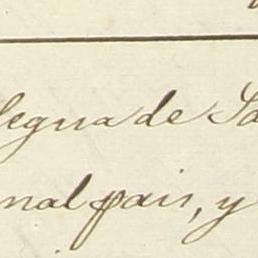 legua de Sa
nal pais, y